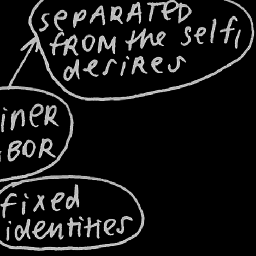 SEPARATED
FROM the self,
desires
INER
BOR
fixed
identities